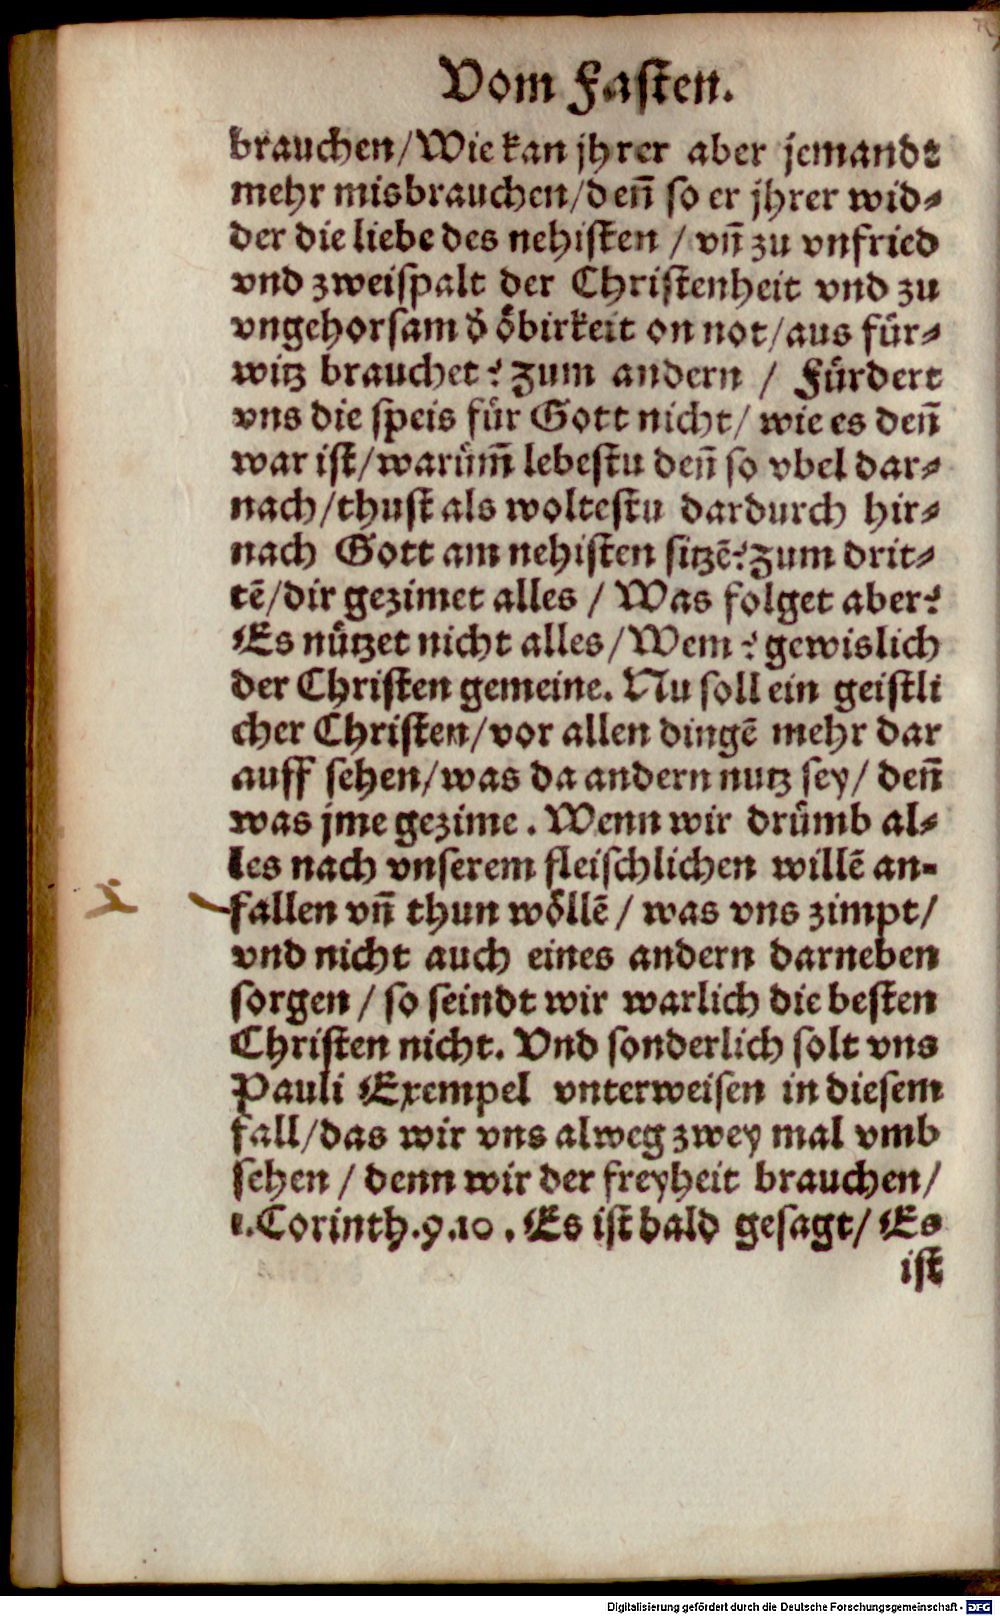 Vom Faſten.
brauchen/Wie kan jhrer aber jemandt
mehr misbrauchen/deñ ſo er jhrer wid⸗
der die liebe des nehiſten / vñ zu vnfried
vnd zweiſpalt der Chriſtenheit vnd zu
vngehorſam d̄ öbirkeit on not/aus für⸗
witz brauchet? Zum andern / Fürdert
vns die ſpeis für Gott nicht/ wie es deñ
war iſt/warüm̃ lebeſtu deñ ſo vbel dar⸗
nach/thuſt als wolteſtu dardurch hir⸗
nach Gott am nehiſten ſitzẽ? Zum drit⸗
tẽ/dir gezimet alles / Was folget aber?
Es nützet nicht alles/Wem? gewislich
der Chriſten gemeine. Nu ſoll ein geiſtli
cher Chriſten/vor allen dingẽ mehr dar
auff ſehen/was da andern nutz ſey/ deñ
was jme gezime. Wenn wir drümb al⸗
les nach vnſerem fleiſchlichen willẽ an⸗
fallen vñ thun wöllẽ / was vns zimpt/
vnd nicht auch eines andern darneben
ſorgen / ſo ſeindt wir warlich die beſten
Chriſten nicht. Vnd ſonderlich ſolt vns
Pauli Exempel vnterweiſen in dieſem
fall/das wir vns alweg zwey mal vmb
ſehen / denn wir der freyheit brauchen/
1.Corinth.9.10. Es iſt bald geſagt/ Es
iſt
Digitalisierung gefördert durch die Deutsche Forschungsgemeinschaft - DFG